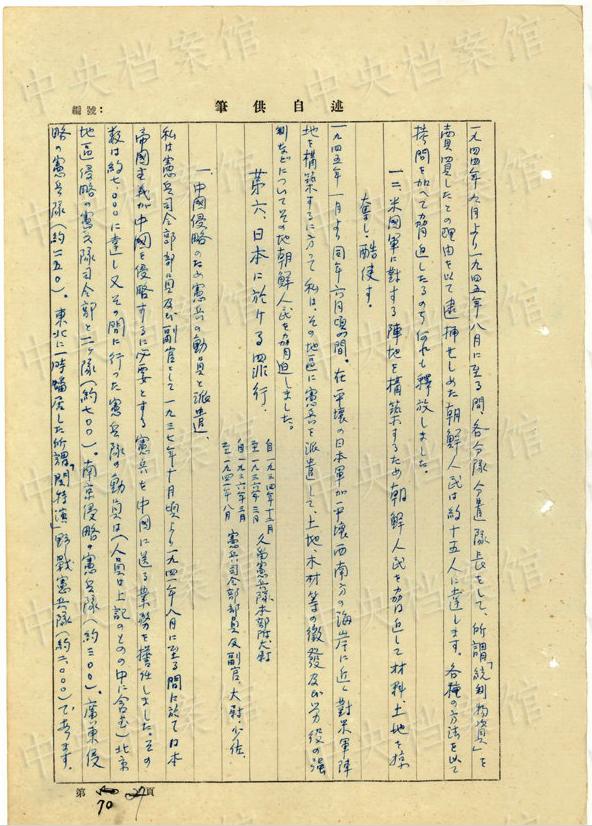 編號：
筆供自述
一九四四年九月より一九四五年八月に至る間、各分隊、分遣隊長をして、所謂「統制物資」を
賣買したとの理由を以て逮捕せしめた朝鮮人民は約十五人に達します。各種の方法を以て
拷問を加へて脅迫したるのち何れも釋放しました。
一二、米國軍に對する陣地を構築するため朝鮮人民を脅迫して材料土地を掠
奪し、酷使す。
一九四五年一月より同年六月頃の間、在平壤の日本軍が平壤西南方の海岸に近く對米軍陣
地を構築するに方って私は、その地區に憲兵を派遣して、土地、木材等の徴發及び労役の强
制などについてその地朝鮮人民を脅迫しました。
第六、日本に於ける罪行.
自一九三四年十二月
至一九三六年三月 久留憲兵隊本部附大尉
自一九三六年三月
至一九四一年八月 憲兵司令部部員及副官、大尉、少佐.
一、中國侵略のため憲兵の動員と派遣、
私は憲兵司令部部員及び副官として一九三七年十月頃より一九四一年八月に至る間に於て日本
帝國主义が中國を侵略するに必要とする憲兵を中國に送る業務を擔任しました。その
数は約七〇〇〇に達し又その間に行った憲兵隊の動員は（人員は上記のものの中に含む）北京
地區侵略の憲兵隊司令部と二ヶ隊（約七〇〇）。南京侵略の憲兵隊（約三〇〇）、廣東侵
略の憲兵隊（約一五〇）。東北に一時蟠居した所謂「関特演」野戰憲兵隊（約二、〇〇〇）であります。
第 70 頁
中央档案馆